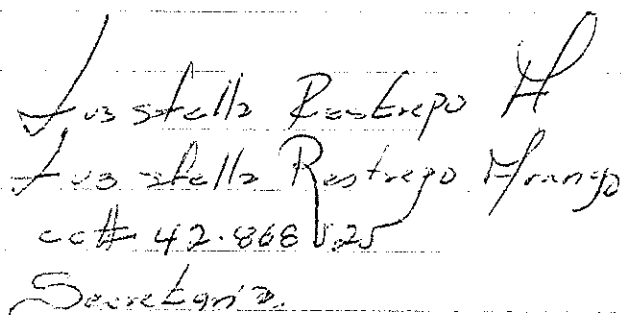 Luz stella Restrepo A
Luz stella Restrepo Arango
cc# 42.868 125
Secretaria.